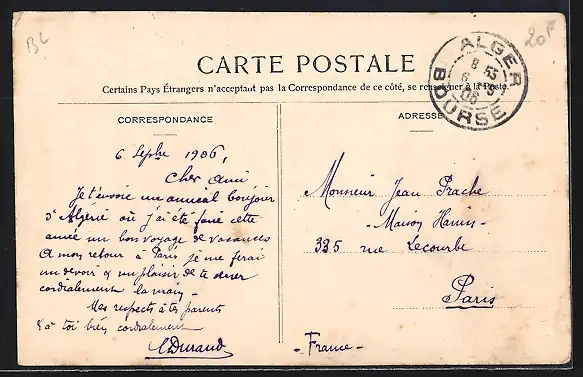 BL
20F
CARTE POSTALE
Certains Pays Étrangers n'acceptant pas la Correspondance de ce côté, se renseigner à la Poste.
ALGER
BOURSE
CORRESPONDANCE
ADRESSE
6 Septbre 1906,
Cher Ami
Je t'envoie un amical bonjour
d'Algérie où j'ai été faire cette
année un bon voyage de vacances
A mon retour à Paris je me ferai
un devoir & un plaisir de te serrer
cordialement la main -
Mes respects à tes parents
& à toi bien cordialement
Durand
Monsieur Jean Prache
- Maison -
335 rue Lecourbe
Paris
- France -